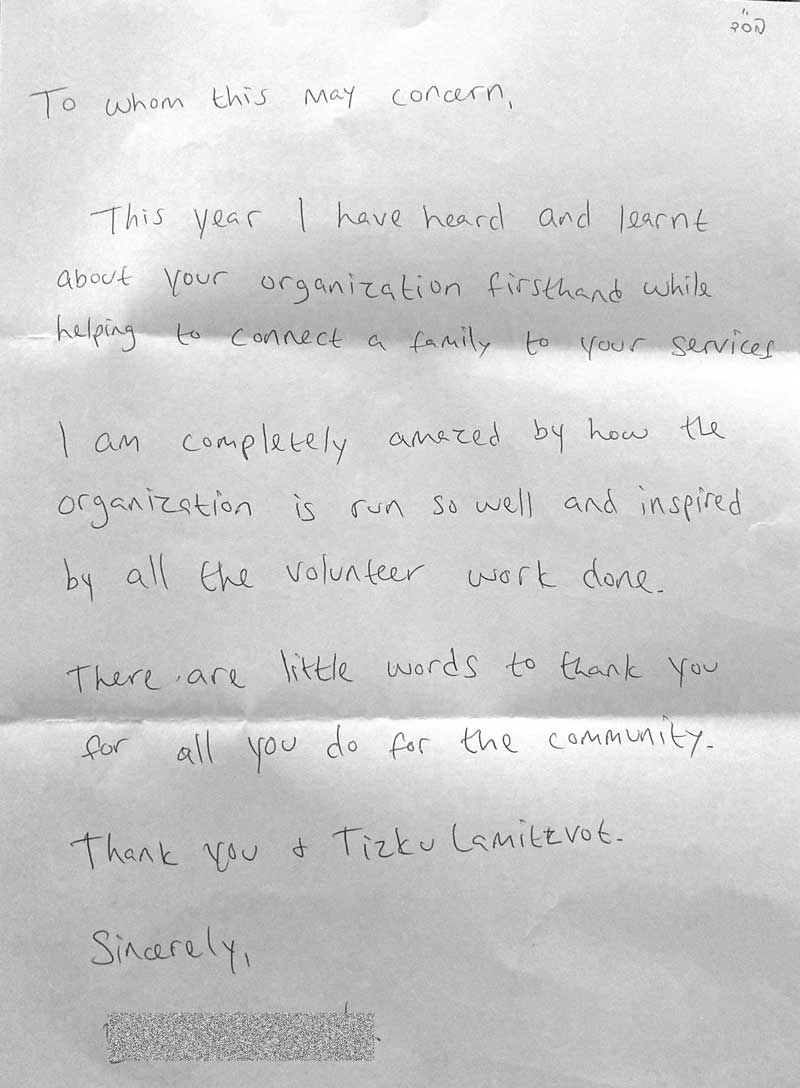 בס"ד
To whom this may concern,
This year I have heard and learnt
about your organization firsthand while
helping to connect a family to your services
I am completely amazed by how the
organization is run so well and inspired
by all the volunteer work done.
There are little words to thank you
for all you do for the community.
Thank you & Tizku Lamitzvot.
Sincerely,